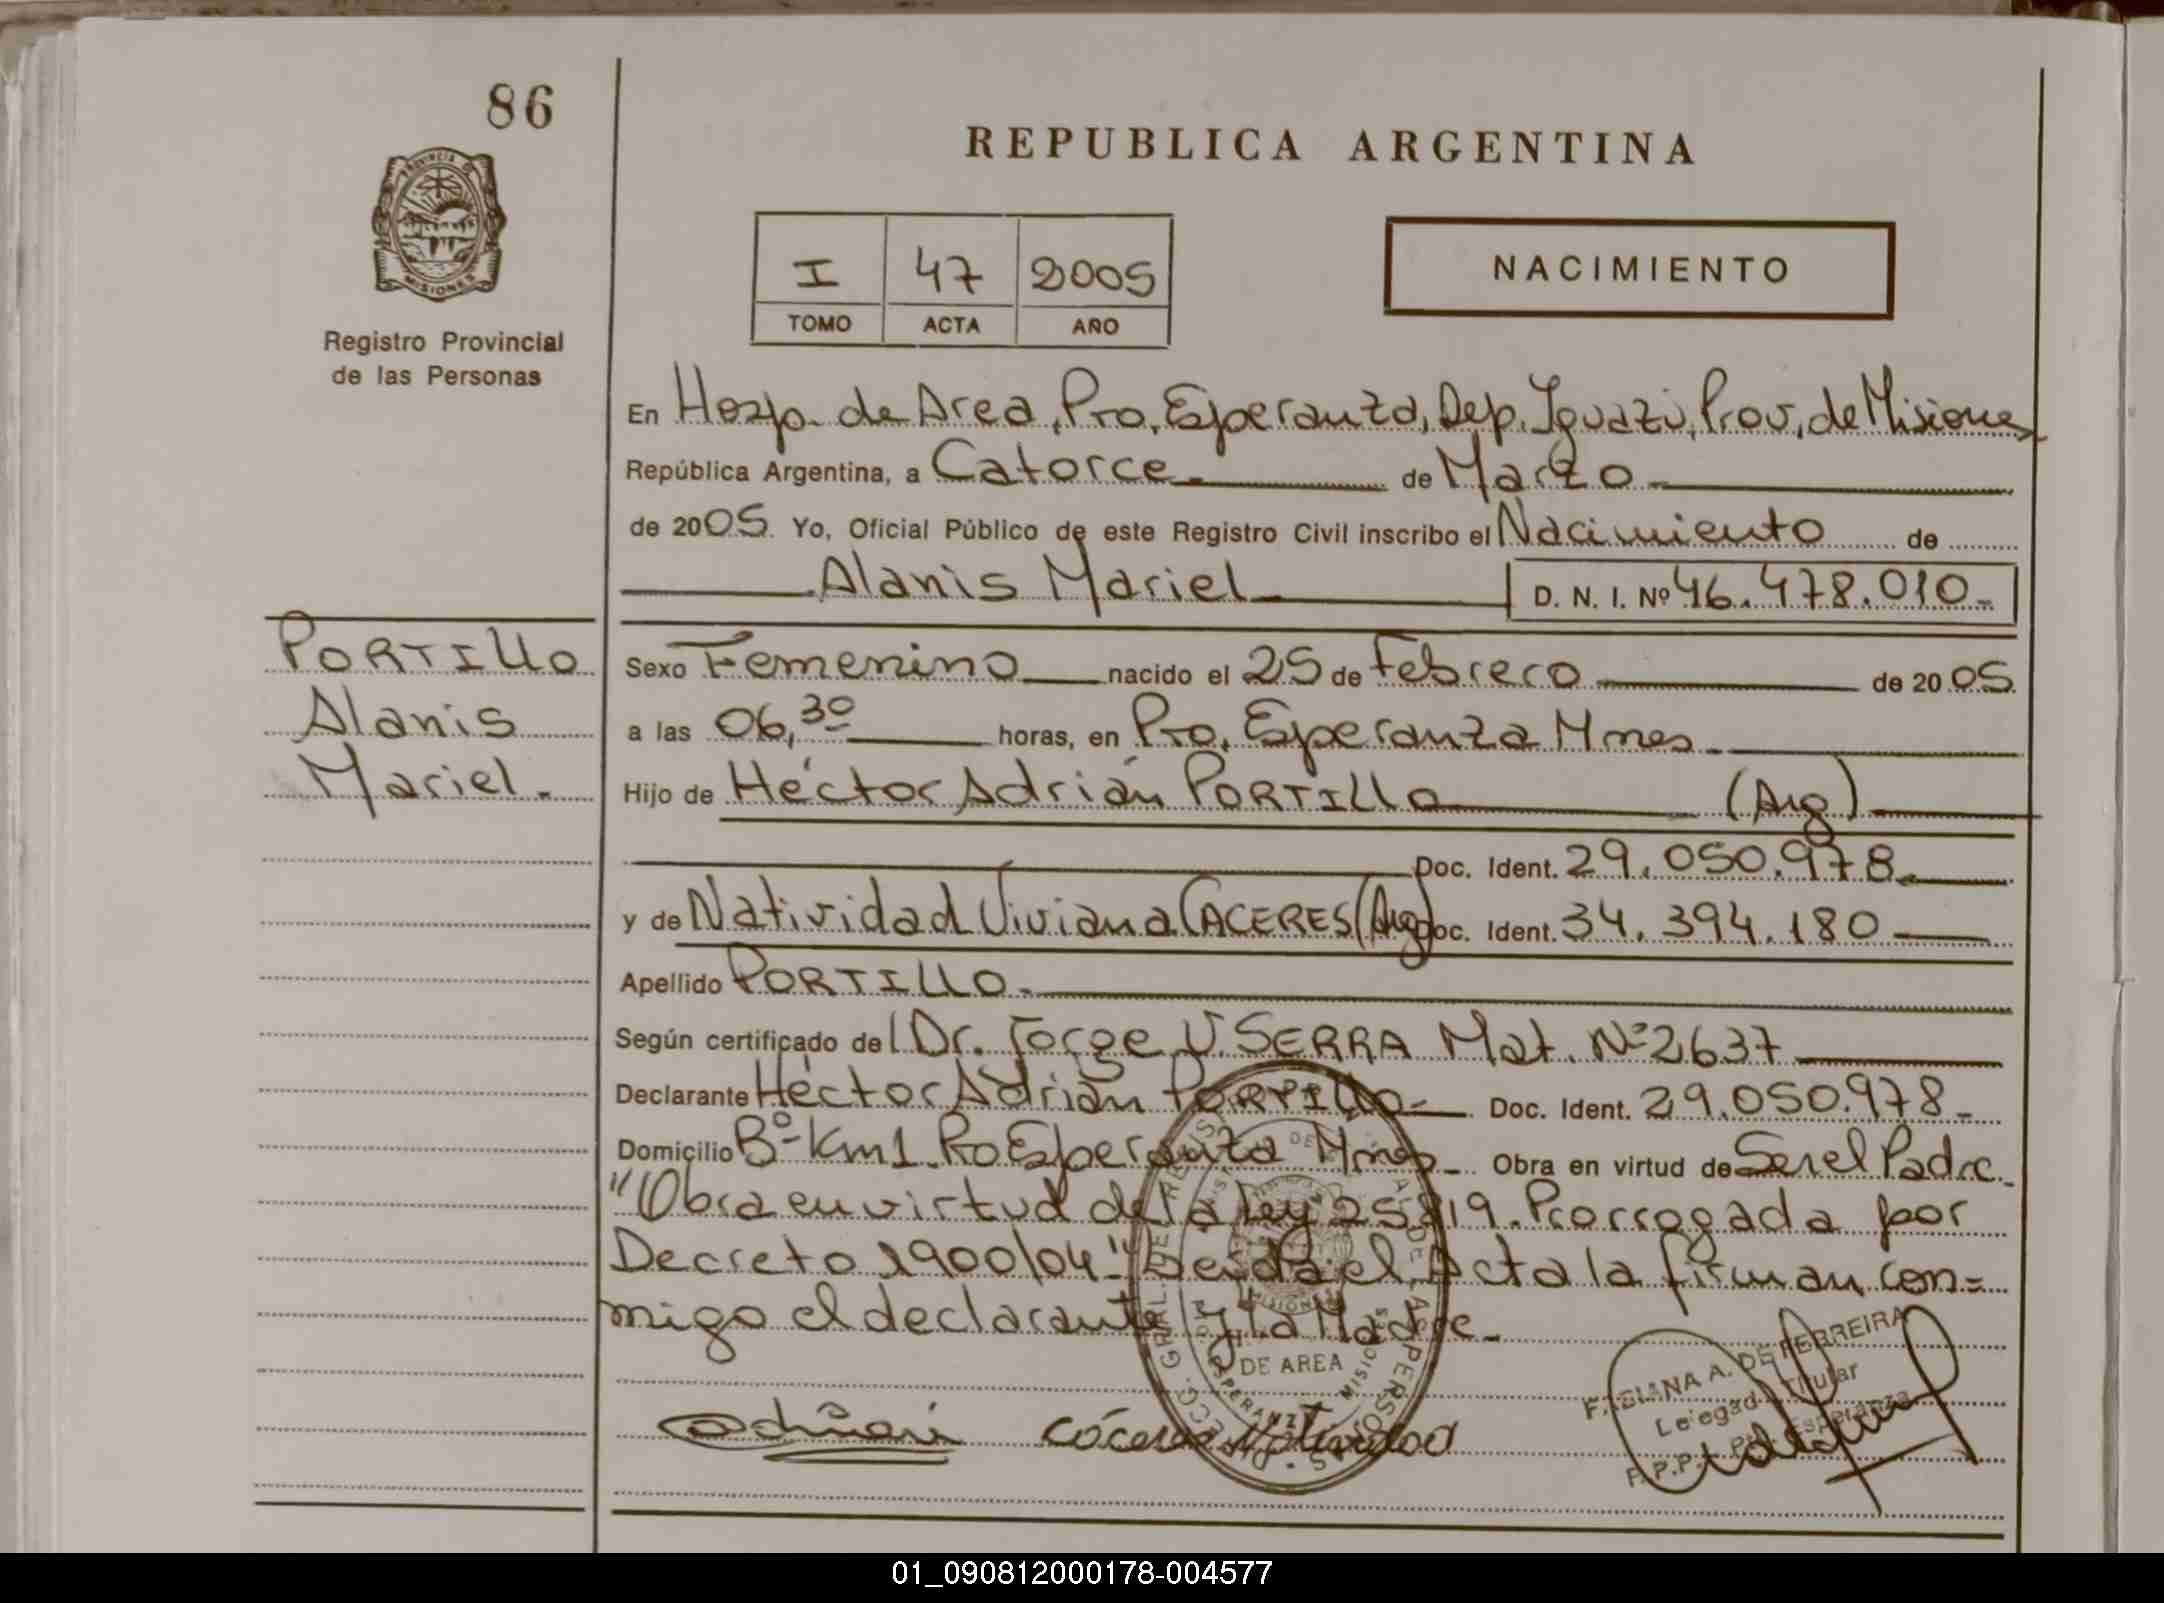 86
PROVINCIA DE
MISIONES
Registro Provincial
de las Personas
REPUBLICA ARGENTINA
I 47 2005
TOMO ACTA AÑO
NACIMIENTO
En Hosp. de Area, Pto. Esperanza, Dep. Iguazú, Prov. de Misiones
República Argentina, a Catorce de Marzo
de 2005. Yo, Oficial Público de este Registro Civil inscribo el Nacimiento de
Alanis Mariel D. N. I. Nº 46.478.010
PORTILLO
Alanis
Mariel.
Sexo Femenino nacido el 25 de Febrero de 2005
a las 06,30 horas, en Pto. Esperanza Mnes
Hijo de Héctor Adrián PORTILLO (Arg)
Doc. Ident. 29.050.978
y de Natividad Viviana CACERES (Arg) Doc. Ident. 34.394.180
Apellido PORTILLO
Según certificado del Dr. Jorge V. SERRA Mat. Nº 2637
Declarante Héctor Adrián PORTILLO Doc. Ident. 29.050.978
Domicilio Bº Km1 Pto Esperanza Mnes Obra en virtud de Ser el Padre
"Obra en virtud de la Ley 25819. Prorrogada por
Decreto 1900/04" Leida el Acta la firman con=
migo el declarante y la Madre
DE AREA
Adrian Cáceres Natividad
FABIANA A. DE FERREIRA
Delegada Titular
Pto. Esperanza
01_090812000178-004577